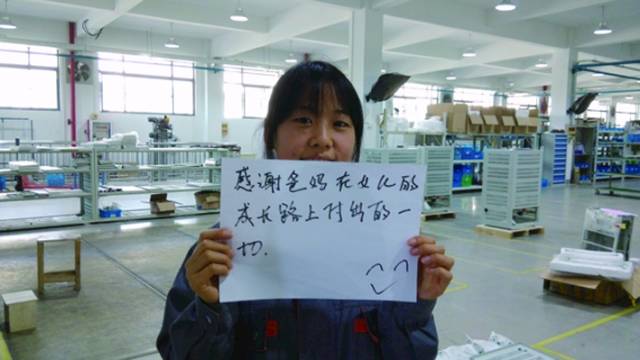 感谢爸妈在女儿的
成长路上付出的一
切.